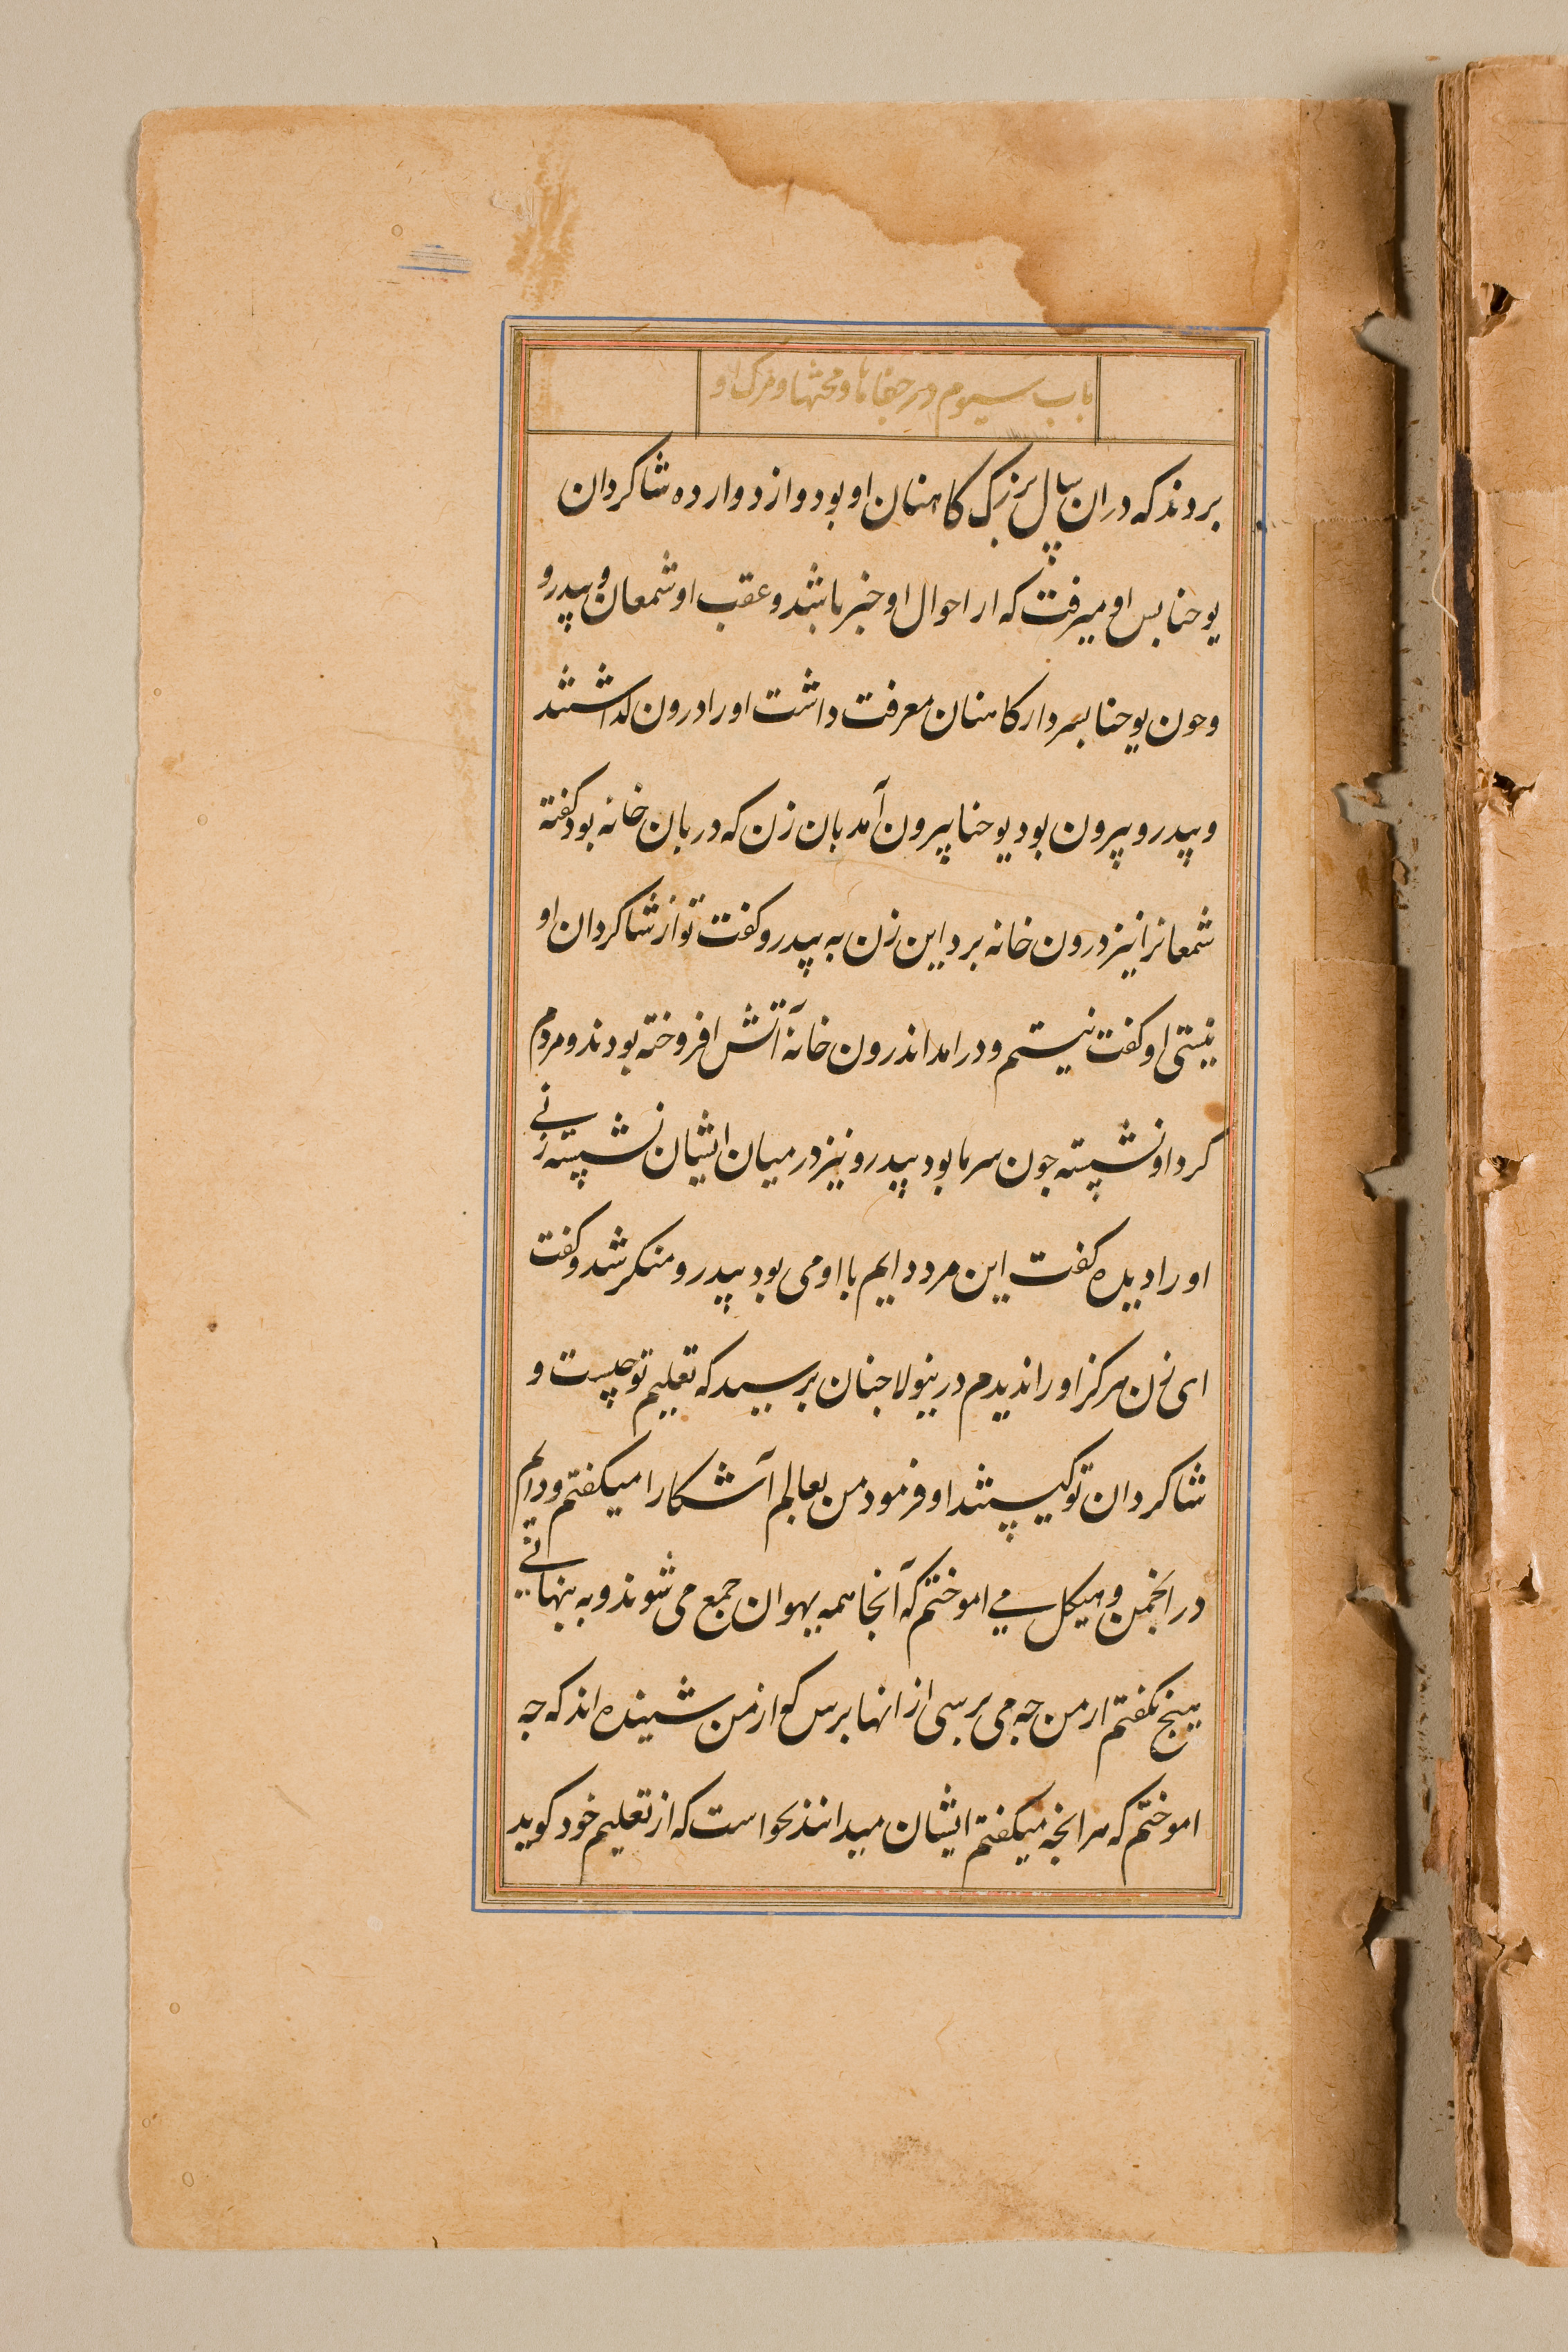 باب سیوم در جفاها و محنتها و مرک او
بردند که دران سال بزرک کاهنان او بود و از دوازده شاکردان
یوحنا بس او میرفت که از احوال او خبر باشد و عقب او شمعان و پیدرو
و جون یوحنا بسردار کاهنان معرفت داشت اورا درون کذاشتند
و پیدرو بیرون بود یوحنا بیرون آمد بان زن که دربان خانه بود کفته
شمعانرا نیز درون خانه برد این زن به پیدرو کفت تو از شاکردان او
نیستی او کفت نیستم و درامد اندرون خانه آتش افروخته بودند و مردم
کرد او نشسته جون سرما بود پیدرو نیز در میان ایشان نشسته زنی
اورا دیده کفت این مرد دایم با او می بود پیدرو منکر شد و کفت
ای زن هرکز اورا ندیدم درینولا حنان برسید که تعلیم تو چیست و
شاکردان تو کیستند او فرمود من بعالم آشکارا میکفتم و دایم
در انجمن و هیکل می اموختم که آنجا همه یهوان جمع می شوند و به بنهانی
هیج نکفتم از من جه می برسی از انها برس کو از من شنیده اند که جه
اموختم که هرانجه میکفتم ایشان میدانند نحواست که از تعلیم خود کوید